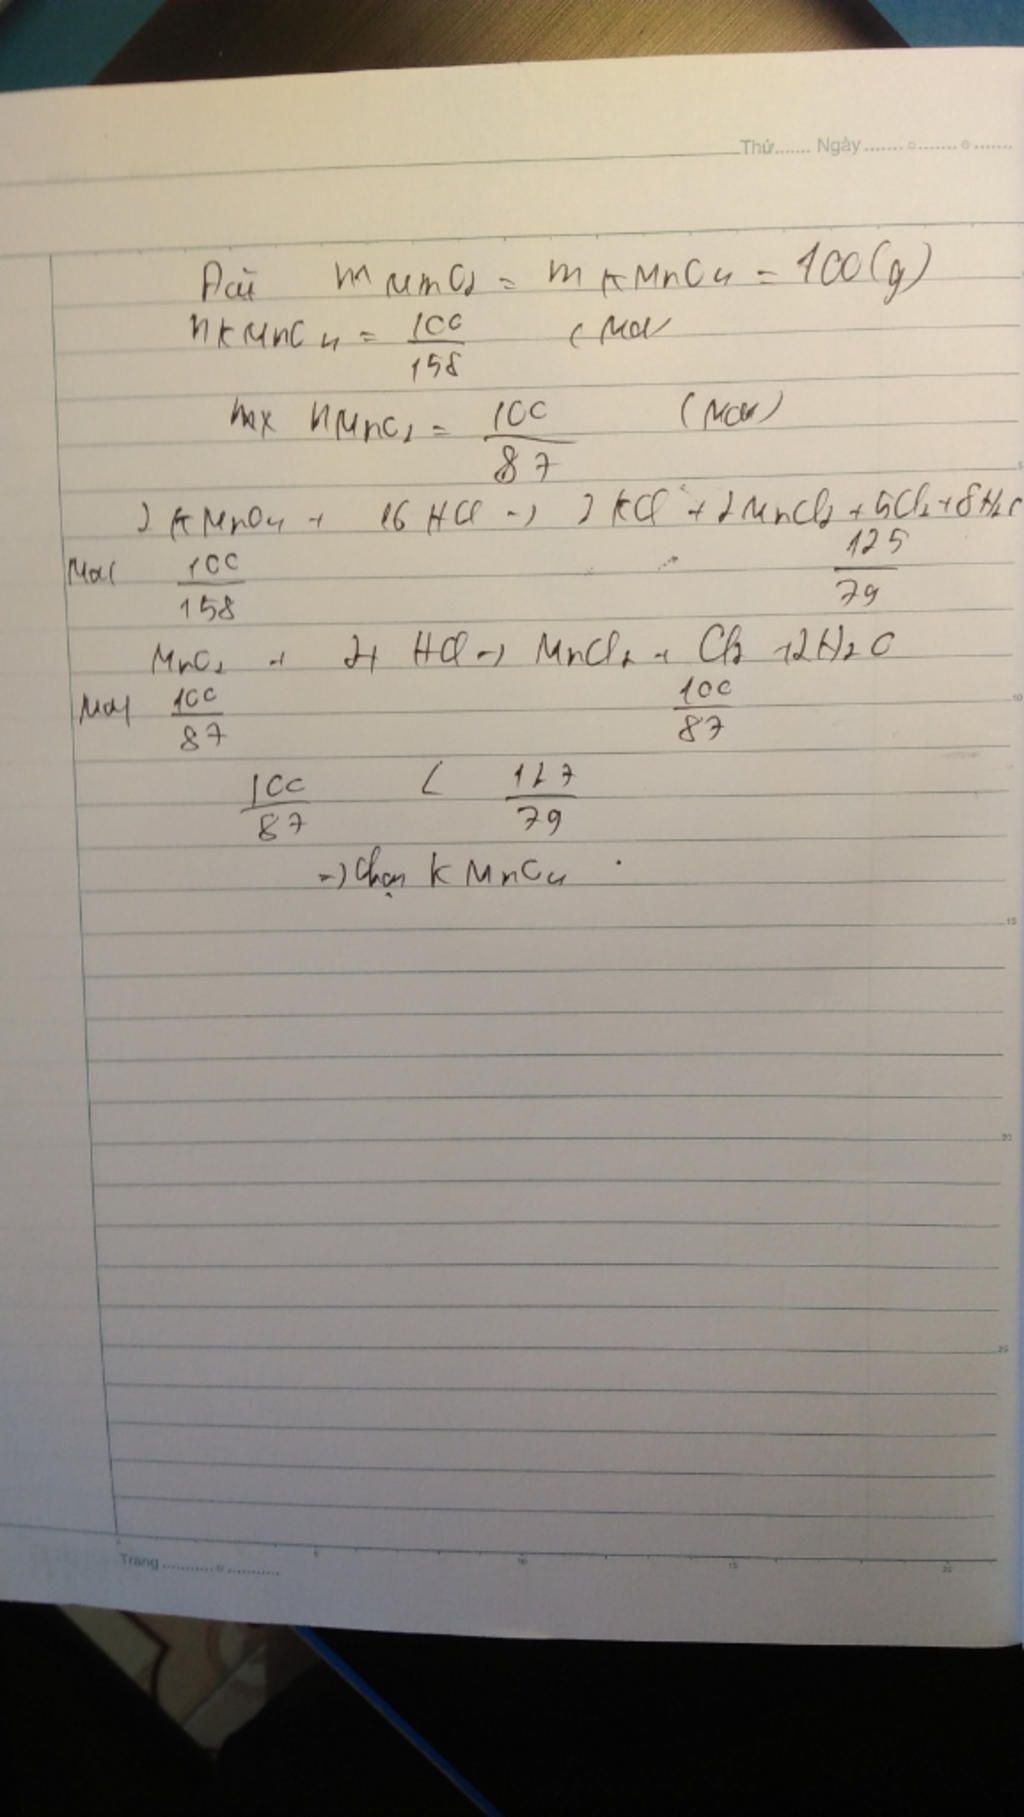 Thứ....... Ngày ....... o ....... o .......
m MnO2 = m KMnO4 = 100(g)
nKMnO4 = 100/158 (Mol
nMnO2 = 100/87 (Mol)
2 KMnO4 + 16 HCl -> 2 KCl + 2MnCl2 + 5Cl2 + 8H2O
Mol 100/158 125/79
MnO2 + 4 HCl -> MnCl2 + Cl2 + 2H2O
Mol 100/87 100/87
100/87 < 127/79
=> Chọn KMnO4
5
10
15
20
25
Trang ......... o .........
5 10 15 20